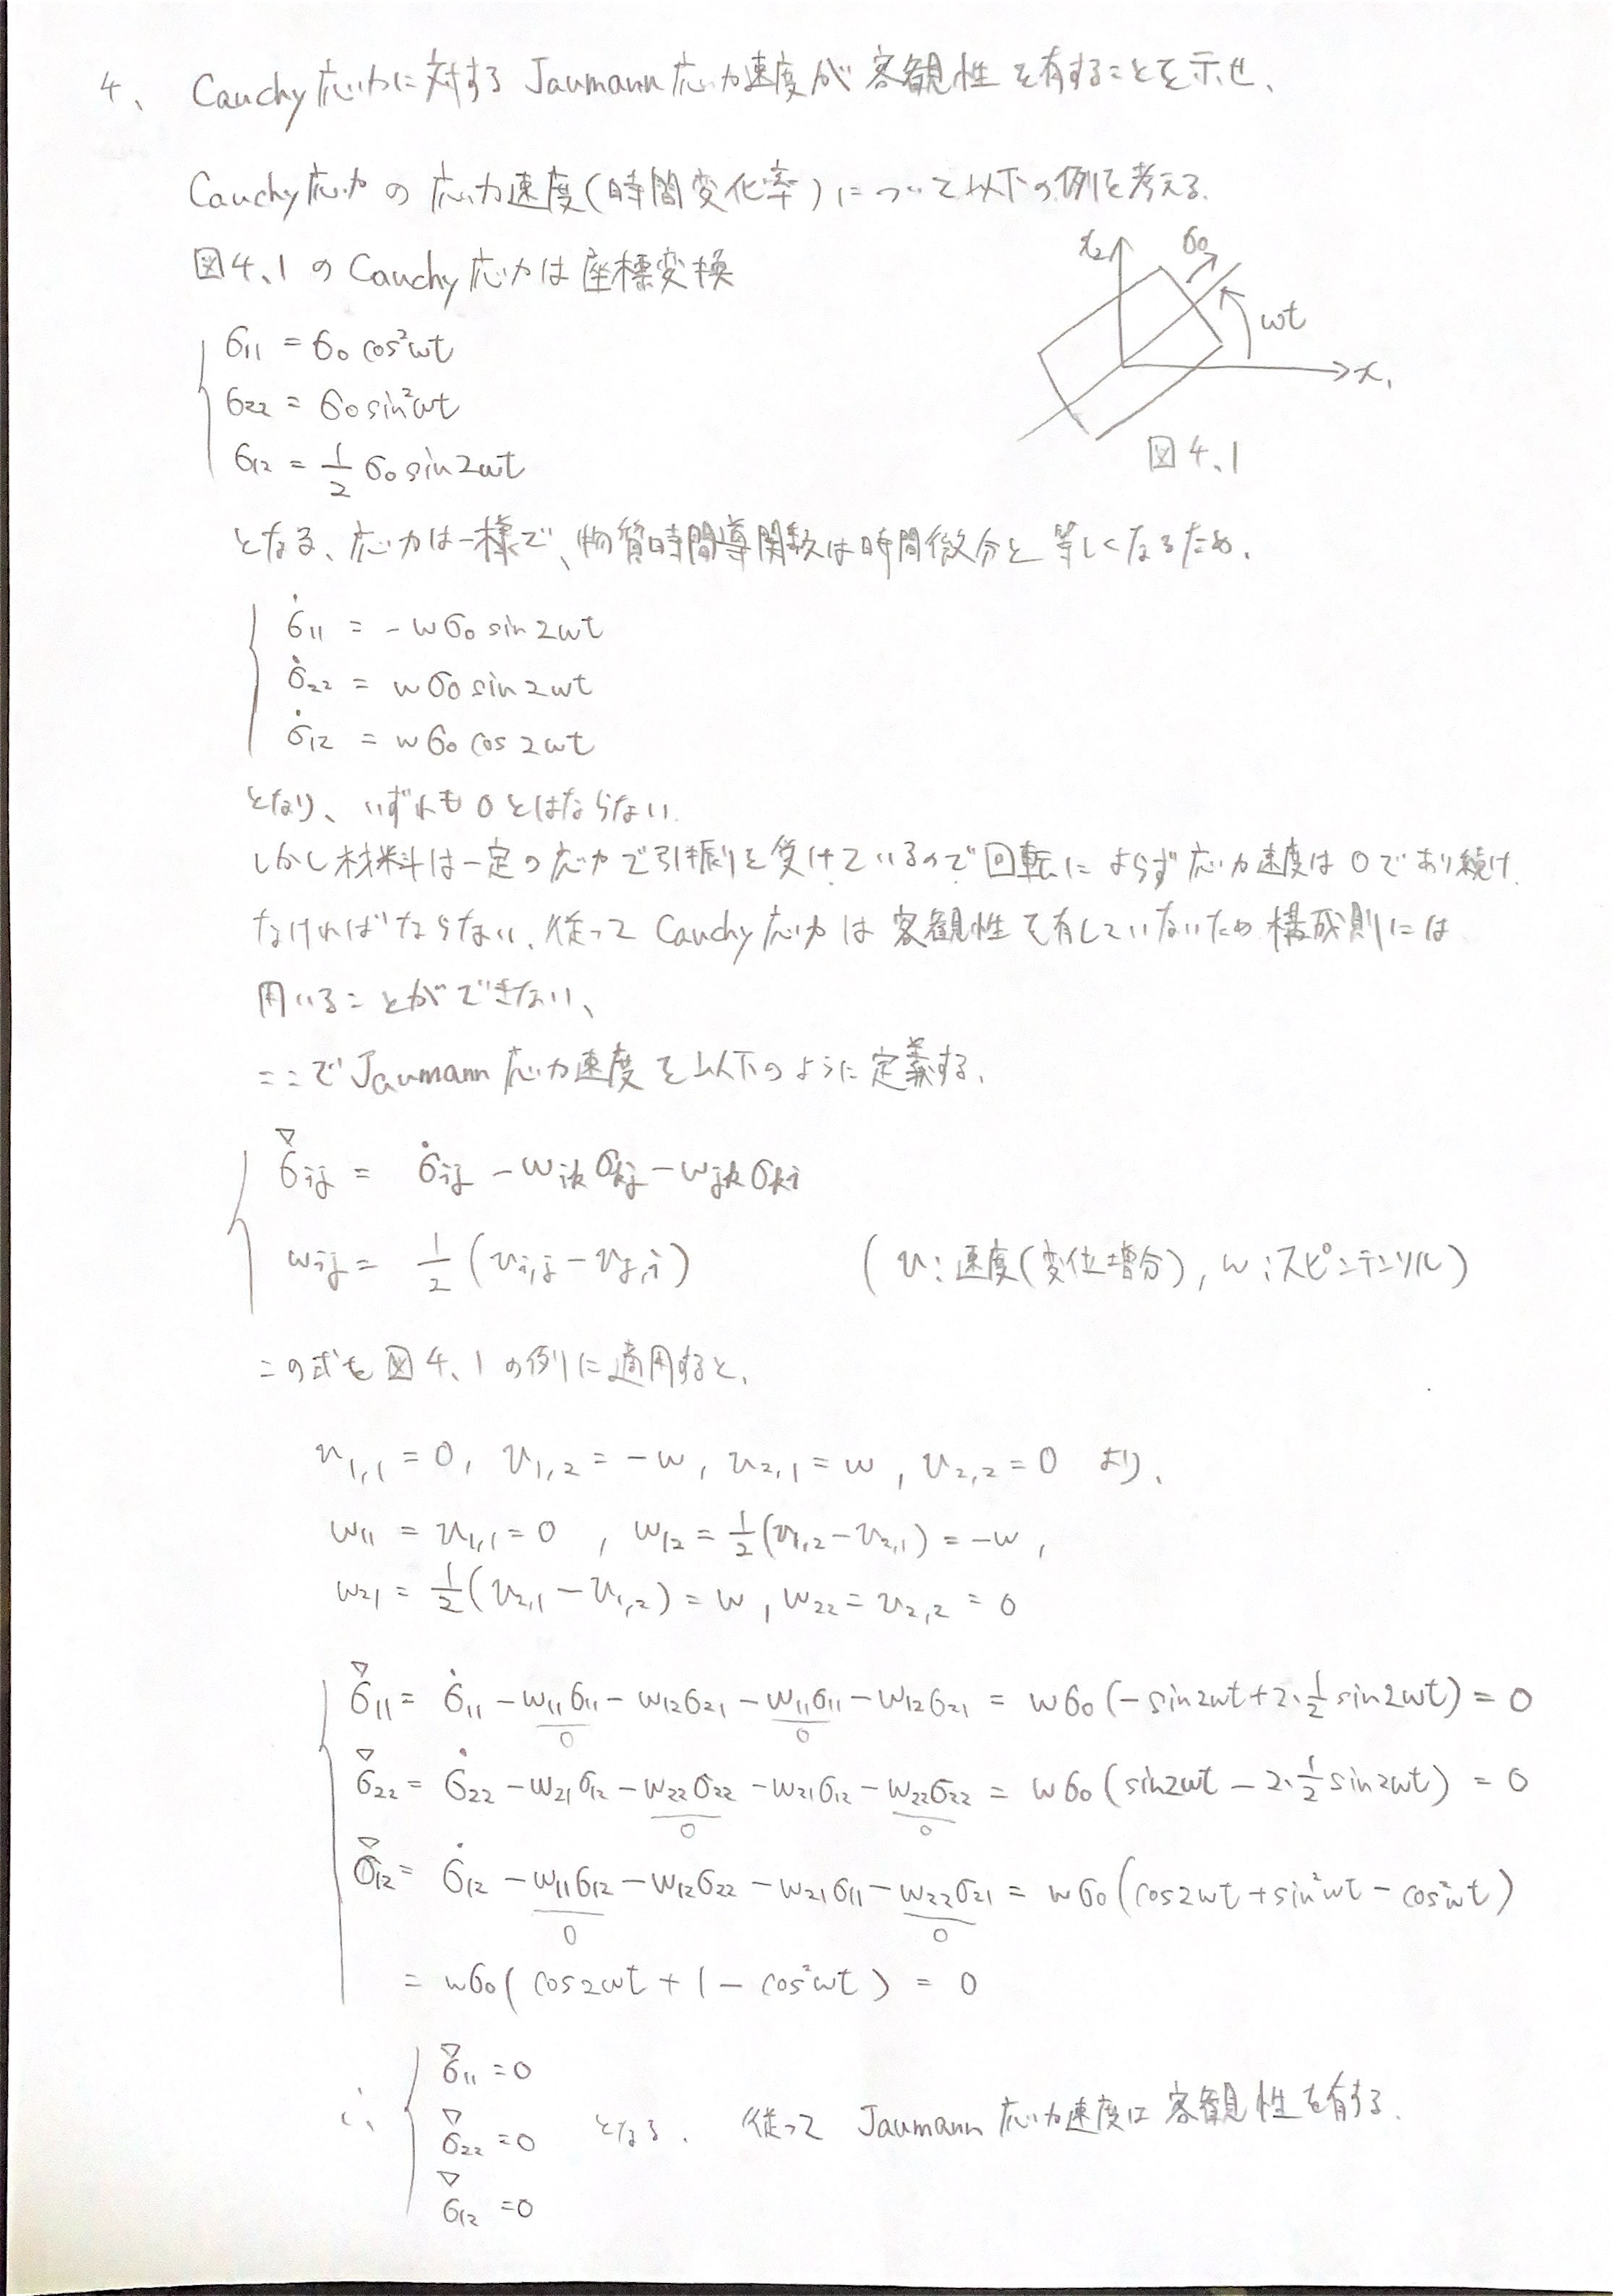 4、 Cauchy応力に対するJaumann応力速度が客観性を有することを示せ、
Cauchy応力の応力速度(時間変化率)について以下の例を考える.
図4.1のCauchy応力は座標変換
x₂ σ₀ ωt x₁
図4.1
σ₁₁ = σ₀ cos²ωt
σ₂₂ = σ₀ sin²ωt
σ₁₂ = 1/2 σ₀ sin2ωt
となる、応力は一様で、物質時間導関数は時間微分と等しくなるため、
σ̇₁₁ = -ωσ₀ sin2ωt
σ̇₂₂ = ωσ₀ sin2ωt
σ̇₁₂ = ωσ₀ cos2ωt
となり、いずれも0とはならない.
しかし材料は一定の応力で引張りを受けているので回転によらず応力速度は0であり続け
なければならない、従ってCauchy応力は客観性を有していないため構成則には
用いることができない、
ここでJaumann応力速度を以下のように定義する、
σ̌ᵢⱼ = σ̇ᵢⱼ - ωᵢₖσₖⱼ - ωⱼₖσₖᵢ
ωᵢⱼ = 1/2 (vᵢ,ⱼ - vⱼ,ᵢ) (v:速度(変位増分), ω:スピンテンソル)
この式を図4.1の例に適用すると、
v₁,₁ = 0, v₁,₂ = -ω, v₂,₁ = ω, v₂,₂ = 0 より、
ω₁₁ = v₁,₁ = 0 , ω₁₂ = 1/2(v₁,₂ - v₂,₁) = -ω,
ω₂₁ = 1/2(v₂,₁ - v₁,₂) = ω, ω₂₂ = v₂,₂ = 0
σ̌₁₁ = σ̇₁₁ - ω₁₁σ₁₁ - ω₁₂σ₂₁ - ω₁₁σ₁₁ - ω₁₂σ₂₁ = ωσ₀(-sin2ωt + 2・1/2 sin2ωt) = 0
0 0
σ̌₂₂ = σ̇₂₂ - ω₂₁σ₁₂ - ω₂₂σ₂₂ - ω₂₁σ₁₂ - ω₂₂σ₂₂ = ωσ₀(sin2ωt - 2・1/2 sin2ωt) = 0
0 0
σ̌₁₂ = σ̇₁₂ - ω₁₁σ₁₂ - ω₁₂σ₂₂ - ω₂₁σ₁₁ - ω₂₂σ₂₁ = ωσ₀(cos2ωt + sin²ωt - cos²ωt)
0 0
= ωσ₀(cos2ωt + 1 - cos²ωt) = 0
σ̌₁₁ = 0
∴ σ̌₂₂ = 0 となる. 従ってJaumann応力速度は客観性を有する.
σ̌₁₂ = 0